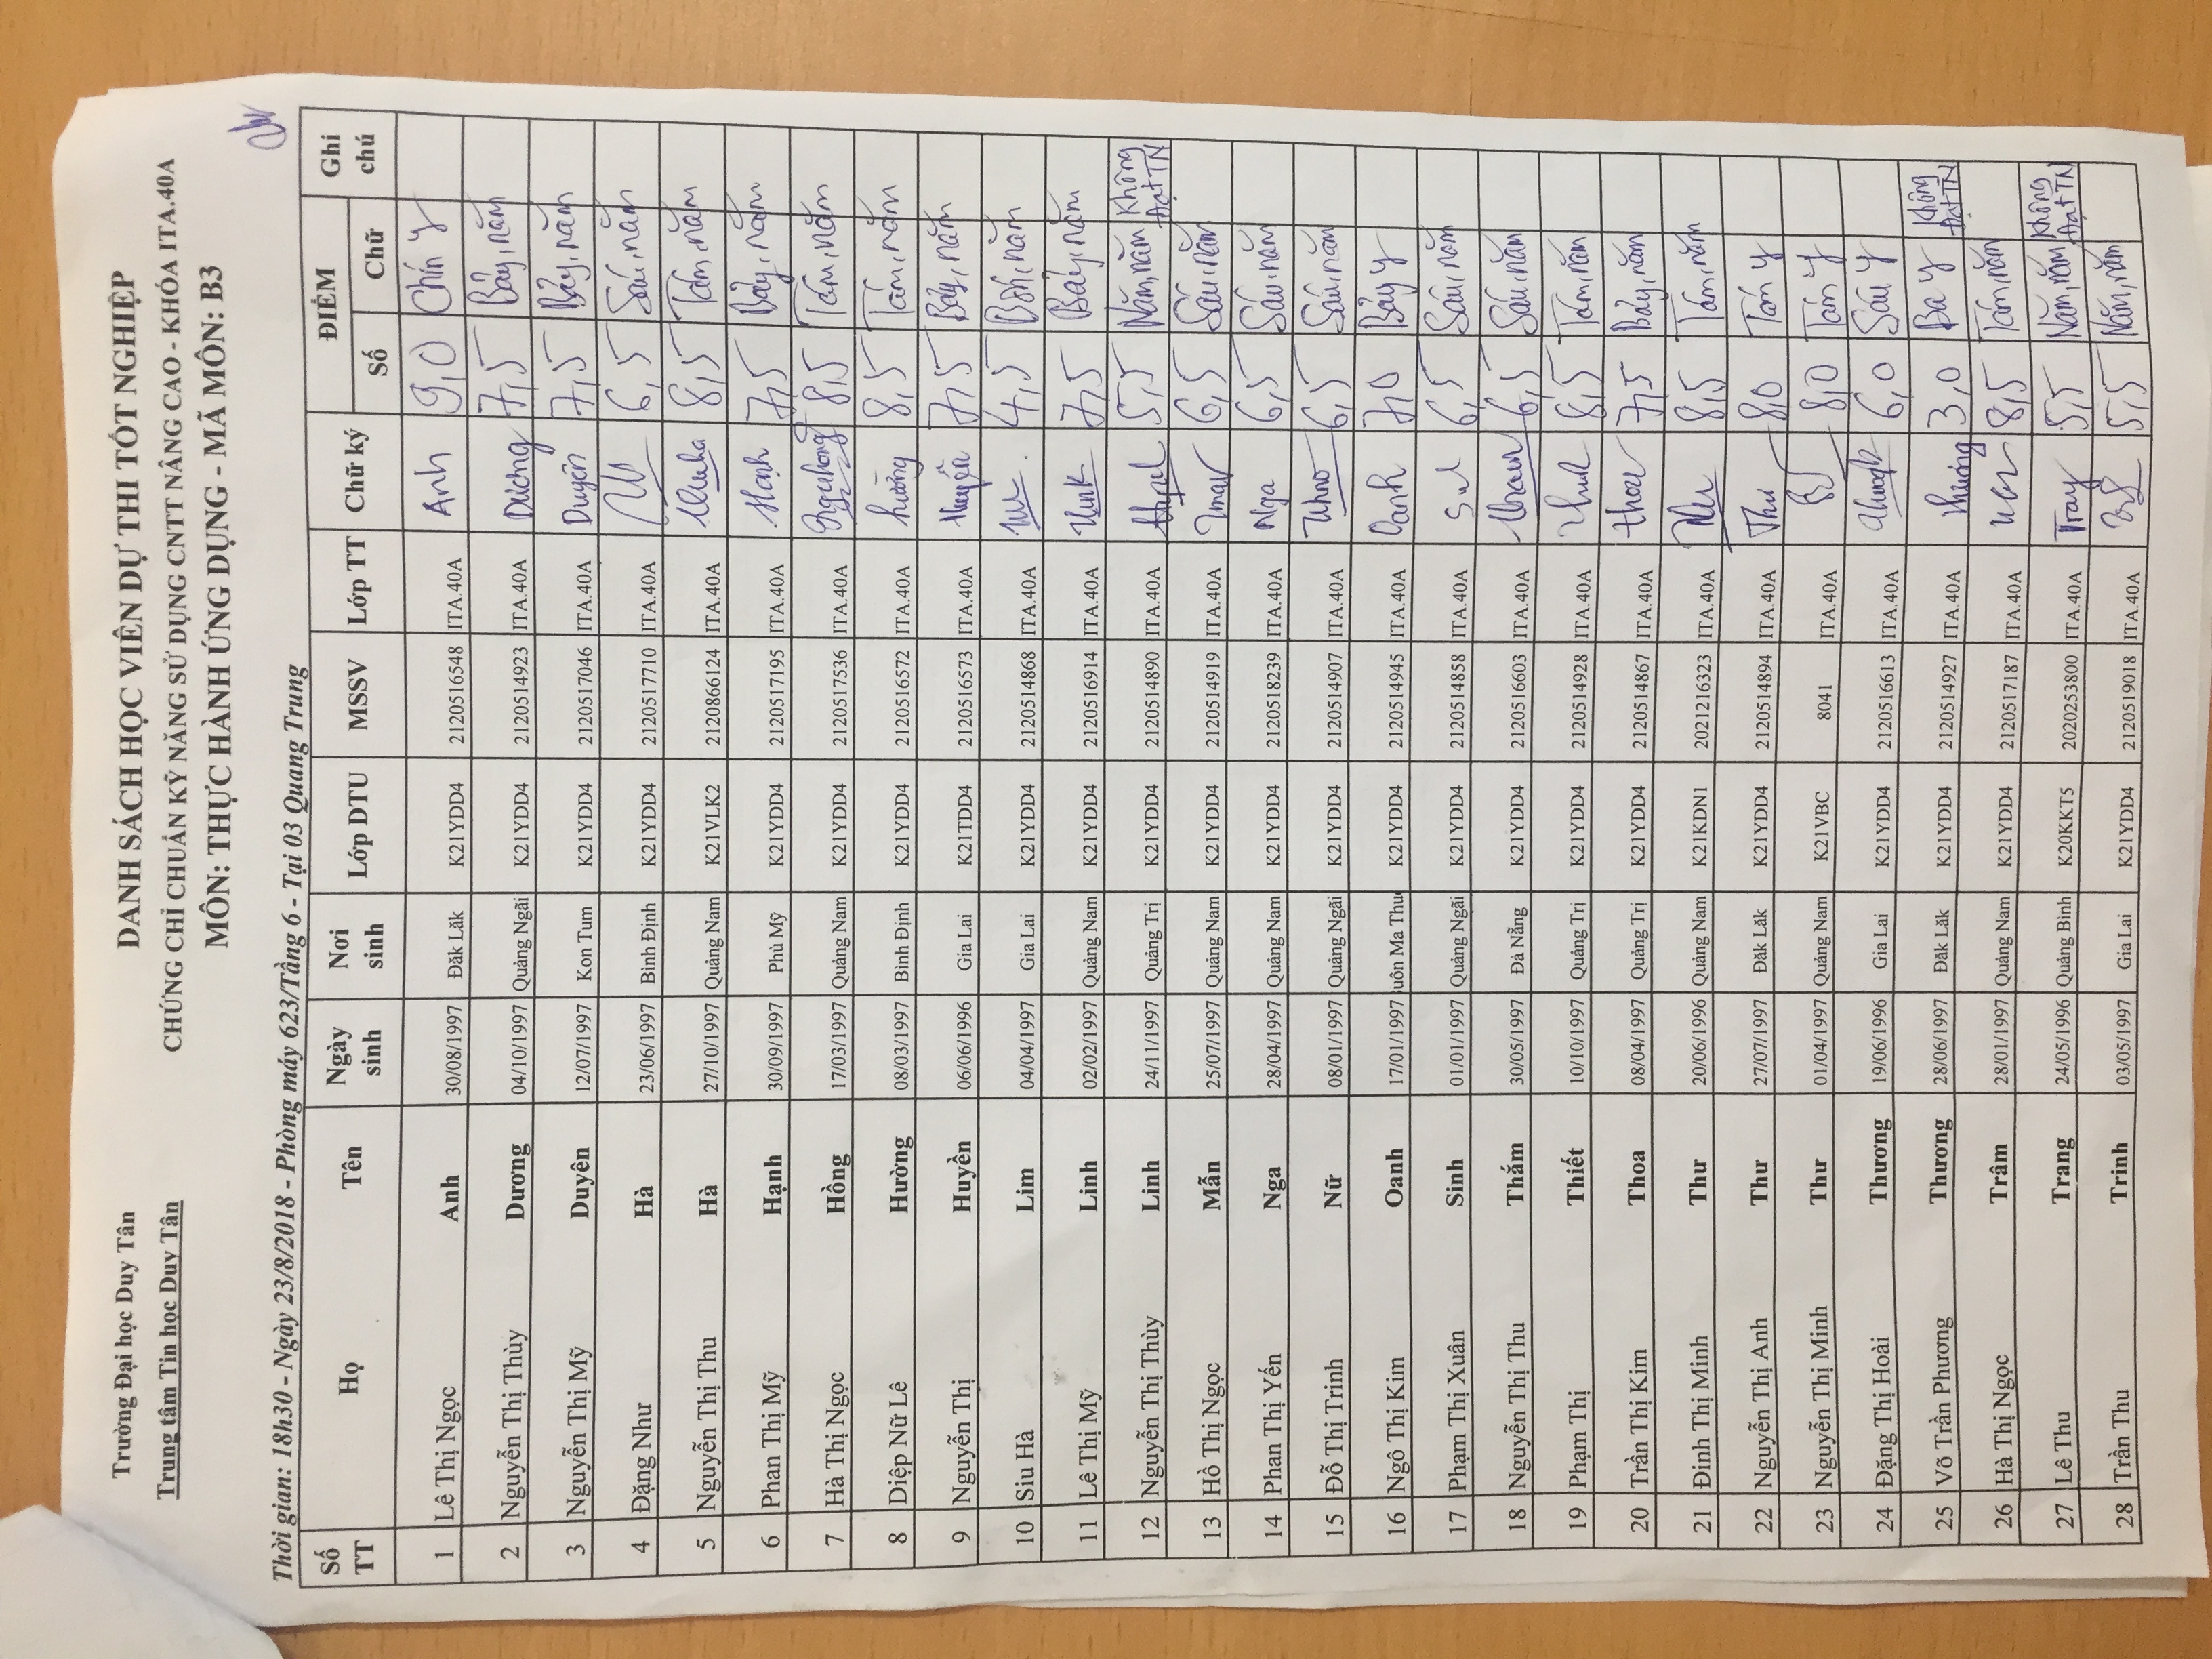 Trường Đại học Duy Tân
Trung tâm Tin học Duy Tân
DANH SÁCH HỌC VIÊN DỰ THI TỐT NGHIỆP
CHỨNG CHỈ CHUẨN KỸ NĂNG SỬ DỤNG CNTT NÂNG CAO - KHÓA ITA.40A
MÔN: THỰC HÀNH ỨNG DỤNG - MÃ MÔN: B3
Thời gian: 18h30 - Ngày 23/8/2018 - Phòng máy 623/Tầng 6 - Tại 03 Quang Trung
Số TT Họ Tên Ngày sinh Nơi sinh Lớp DTU MSSV Lớp TT Chữ ký ĐIỂM Số Chữ Ghi chú
1 Lê Thị Ngọc Anh 30/08/1997 Đăk Lăk K21YDD4 2120516548 ITA.40A Anh 9,0 Chín y
2 Nguyễn Thị Thùy Dương 04/10/1997 Quảng Ngãi K21YDD4 2120514923 ITA.40A Dương 7,5 Bảy, năm
3 Nguyễn Thị Mỹ Duyên 12/07/1997 Kon Tum K21YDD4 2120517046 ITA.40A Duyên 7,5 Bảy, năm
4 Đặng Như Hà 23/06/1997 Bình Định K21YDD4 2120517710 ITA.40A 6,5 Sáu, năm
5 Nguyễn Thị Thu Hà 27/10/1997 Quảng Nam K21VLK2 2120866124 ITA.40A 8,5 Tám, năm
6 Phan Thị Mỹ Hạnh 30/09/1997 Phù Mỹ K21YDD4 2120517195 ITA.40A Hạnh 7,5 Bảy, năm
7 Hà Thị Ngọc Hồng 17/03/1997 Quảng Nam K21YDD4 2120517536 ITA.40A 8,5 Tám, năm
8 Diệp Nữ Lê Hường 08/03/1997 Bình Định K21YDD4 2120516572 ITA.40A hường 8,5 Tám, năm
9 Nguyễn Thị Huyền 06/06/1996 Gia Lai K21TDD4 2120516573 ITA.40A Huyền 7,5 Bảy, năm
10 Siu Hà Lim 04/04/1997 Gia Lai K21YDD4 2120514868 ITA.40A 4,5 Bốn, năm
11 Lê Thị Mỹ Linh 02/02/1997 Quảng Nam K21YDD4 2120516914 ITA.40A 7,5 Bảy, năm
12 Nguyễn Thị Thùy Linh 24/11/1997 Quảng Trị K21YDD4 2120514890 ITA.40A 5,5 Năm, năm Không đạt TN
13 Hồ Thị Ngọc Mẫn 25/07/1997 Quảng Nam K21YDD4 2120514919 ITA.40A 6,5 Sáu, năm
14 Phan Thị Yến Nga 28/04/1997 Quảng Nam K21YDD4 2120518239 ITA.40A Nga 6,5 Sáu, năm
15 Đỗ Thị Trinh Nữ 08/01/1997 Quảng Ngãi K21YDD4 2120514907 ITA.40A 6,5 Sáu, năm
16 Ngô Thị Kim Oanh 17/01/1997 uôn Ma Thuộ K21YDD4 2120514945 ITA.40A Oanh 7,0 Bảy y
17 Phạm Thị Xuân Sinh 01/01/1997 Quảng Ngãi K21YDD4 2120514858 ITA.40A 6,5 Sáu, năm
18 Nguyễn Thị Thu Thắm 30/05/1997 Đà Nẵng K21YDD4 2120516603 ITA.40A 6,5 Sáu, năm
19 Phạm Thị Thiết 10/10/1997 Quảng Trị K21YDD4 2120514928 ITA.40A 8,5 Tám, năm
20 Trần Thị Kim Thoa 08/04/1997 Quảng Trị K21YDD4 2120514867 ITA.40A thoa 7,5 Bảy, năm
21 Đinh Thị Minh Thư 20/06/1996 Quảng Nam K21KDN1 2021216323 ITA.40A 8,5 Tám, năm
22 Nguyễn Thị Anh Thư 27/07/1997 Đăk Lăk K21YDD4 2120514894 ITA.40A Thư 8,0 Tám y
23 Nguyễn Thị Minh Thư 01/04/1997 Quảng Nam K21VBC 8041 ITA.40A 8,0 Tám y
24 Đặng Thị Hoài Thương 19/06/1996 Gia Lai K21YDD4 2120516613 ITA.40A 6,0 Sáu y
25 Võ Trần Phương Thương 28/06/1997 Đăk Lăk K21YDD4 2120514927 ITA.40A thương 3,0 Ba y Không đạt TN
26 Hà Thị Ngọc Trâm 28/01/1997 Quảng Nam K21YDD4 2120517187 ITA.40A 8,5 Tám, năm
27 Lê Thu Trang 24/05/1996 Quảng Bình K20KKT5 2020253800 ITA.40A Trang 5,5 Năm, năm Không đạt TN
28 Trần Thu Trinh 03/05/1997 Gia Lai K21YDD4 2120519018 ITA.40A 5,5 Năm, năm